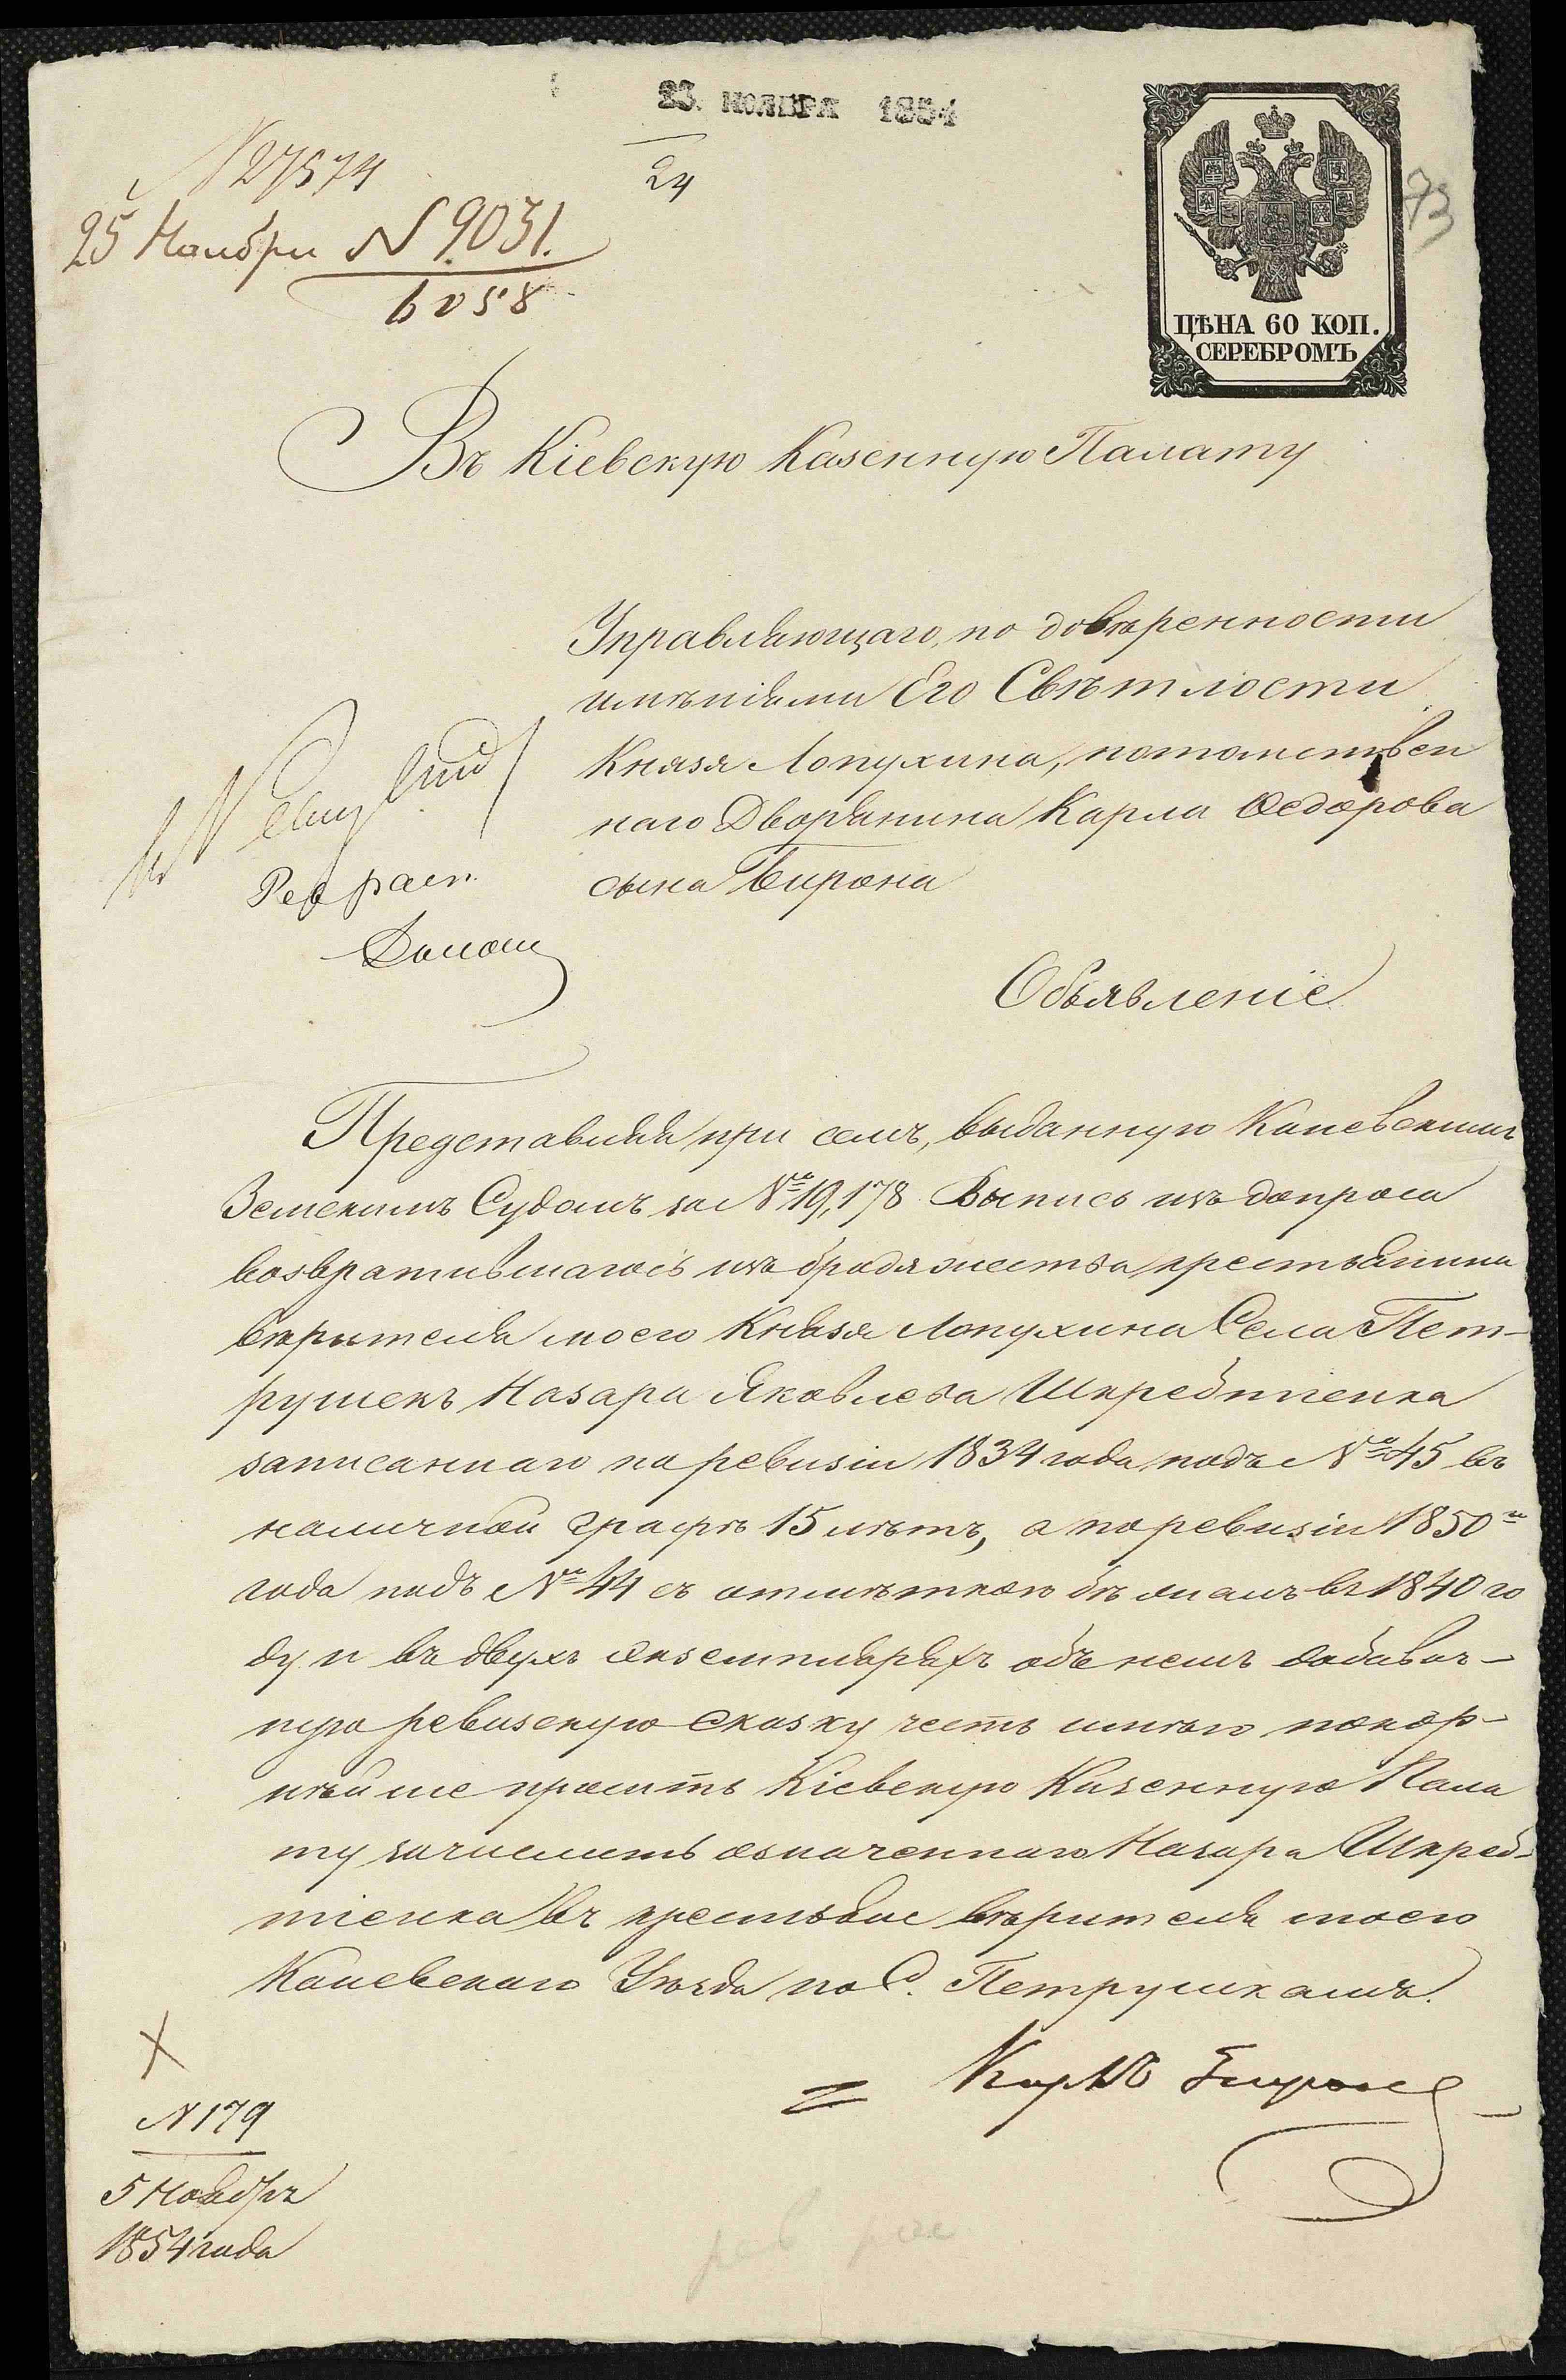 23. НОЯБРЯ 1854
24
N 27574
25 Ноября N 9031.
6058
73
ЦѢНА 60 КОП.
СЕРЕБРОМЪ
Въ Кіевскую Казенную Палату
Управляющаго, по довѣренности
имѣніями Его Свѣтлости
Князя Лопухина, потомствен
наго Дворянина Карла Ѳедорова
сына Бирона
Объявленіе
Представляя при семъ, выданную Каневскимъ
Земскимъ Судомъ за № 19,178 Выпись изъ допроса
возвратившагося изъ бродяжества крестьянина
вѣрителя моего Князя Лопухина Села Пет-
рушекъ Назара Яковлева Шкребтіенка
записаннаго по ревизіи 1834 года подъ № 45 въ
наличной графѣ 15 лѣтъ, а по ревизіи 1850
года подъ № 44 съ отмѣткою бѣжалъ въ 1840 го
ду и въ двухъ экземплярахъ объ немъ добавоч-
ную ревизскую Сказку честь имѣю покор-
нѣйше просить Кіевскую Казенную Пала
ту зачислить означеннаго Назара Шкреб-
тіенка въ крестьяне вѣрителя моего
Каневскаго Уѣзда по С. Петрушкамъ.
Карлъ Биронъ
N 179
5 Ноября
1854 года